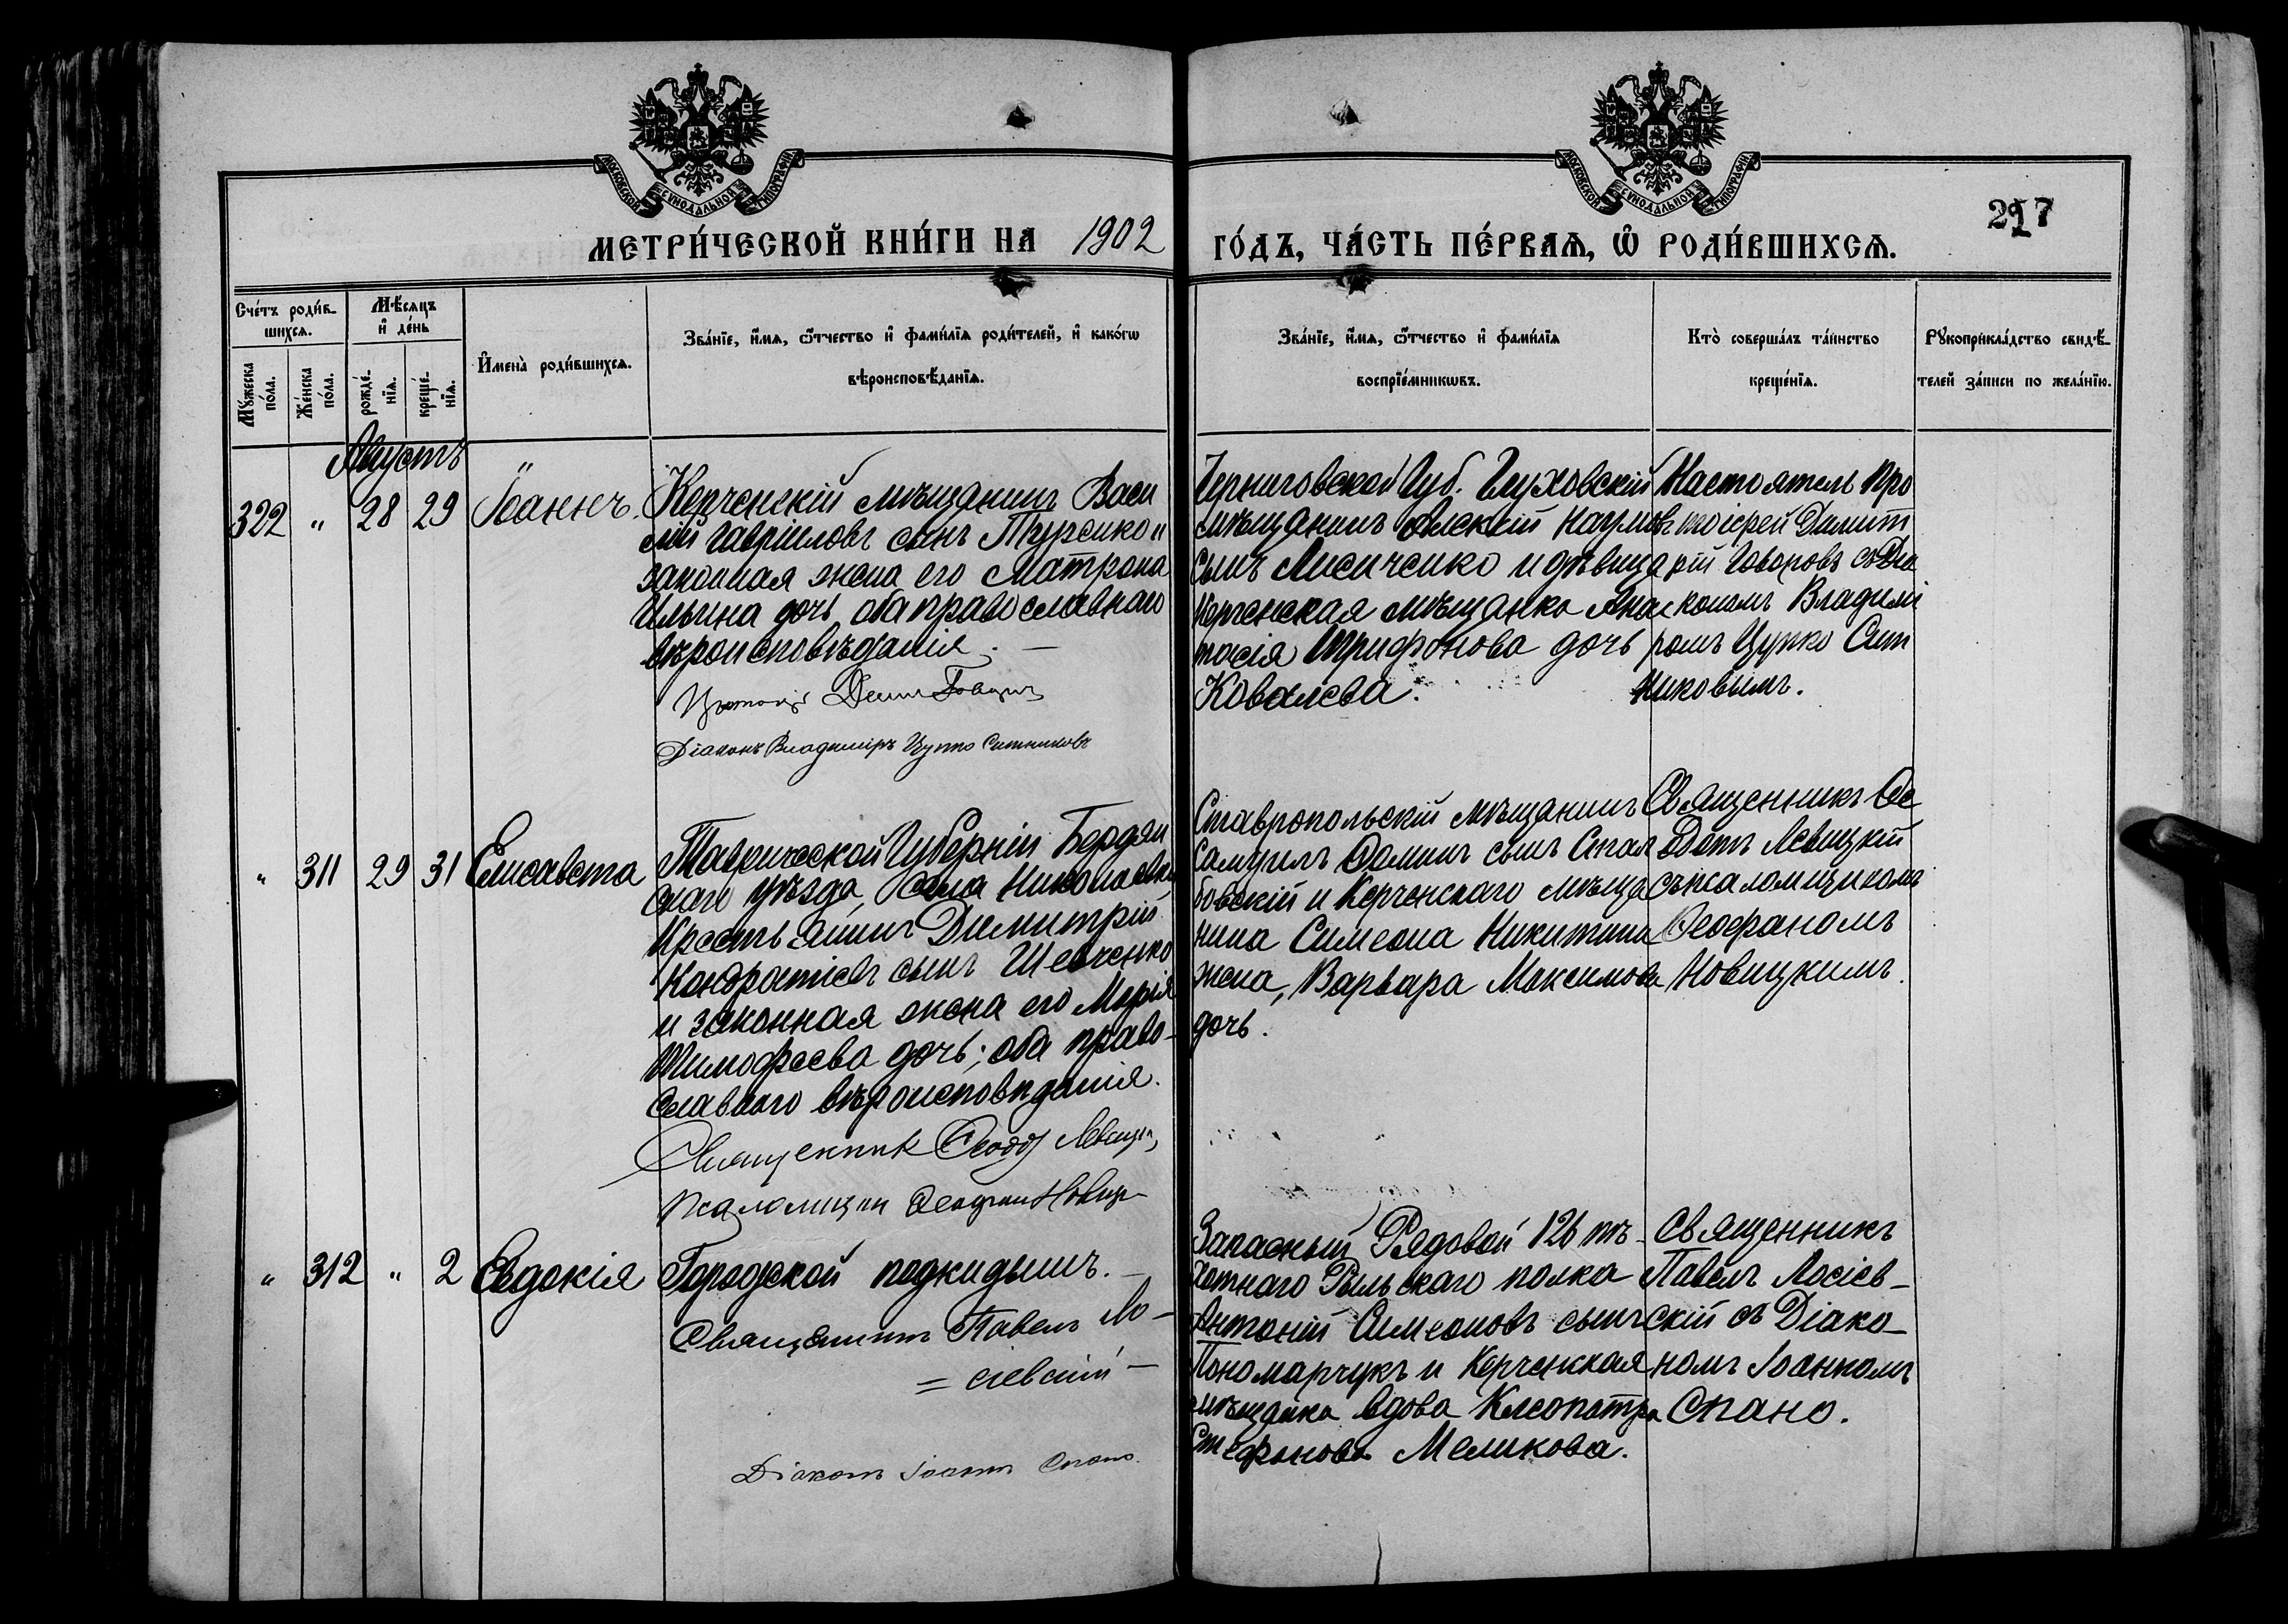 МОСКОВСКОЙ СѴНОДАЛЬНОЙ ТИПОГРАФІИ
МОСКОВСКОЙ СѴНОДАЛЬНОЙ ТИПОГРАФІИ
МЕТРИ́ЧЕСКОЙ КНИ́ГИ НА 1902 ГО́ДЪ, ЧА́СТЬ ПЕ́РВАѦ, Ѡ҆ РОДИ́ВШИХСѦ.
217
Сче́тъ роди́в-
шихсѧ.
Мꙋ́жеска по́ла.
Же́нска по́ла.
Мѣ́сѧцъ
и҆ де́нь
рожде́-нїѧ.
креще́-нїѧ.
И҆мена̀ роди́вшихсѧ.
Зва́нїе, и҆́мѧ, ѻ҆́тчество и҆ фами́лїѧ роди́телей, и҆ како́гѡ
вѣроисповѣ́данїѧ.
Зва́нїе, и҆́мѧ, ѻ҆́тчество и҆ фами́лїѧ
воспрїе́мникѡвъ.
Кто̀ соверша́лъ та́инство
креще́нїѧ.
Рꙋкоприкла́дство свидѣ́-
телей за́писи по жела́нїю.
Августъ
322 " 28 29 Іоаннъ.
Керченскій мѣщанинъ Васи
лій Гавріиловъ сынъ Туренко и
законная жена его Матрона
Ильина дочь, оба православнаго
вѣроисповѣданія. —
Діаконъ Владиміръ Цупко Ситниковъ
Черниговской Губ. Глуховскій
мѣщанинъ Наумовъ
сынъ Лисиченко и дѣвица
Керченская мѣщанка Анас
тасія Трифонова дочь
Ковалева.
Настоятель Про
тоіерей Димит
рій Говоровъ съ Діа
кономъ Владимі
ромъ Цупко Сит
никовымъ.
" 311 29 31 Елисавета
Таврической Губерніи Бердян
скаго уѣзда, Села Николаевки
Крестьянинъ Димитрій
Кондратіевъ сынъ Шевченко
и законная жена его Марія
Тимофеева дочь; оба право-
славнаго вѣроисповѣданія.
Священникъ Ѳеодотъ Левицкій
Псаломщикъ Ѳеофанъ Новицкій
Ставропольскій мѣщанинъ
Самуилъ Ѳоминъ сынъ Спал
бовскій и Керченскаго мѣща
нина Симеона Никитина
жена, Варвара Максимова
дочь.
Священникъ Ѳе
одотъ Левицкій
съ псаломщикомъ
Ѳеофаномъ
Новицкимъ.
" 312 " 2 Евдокія
Городской подкидышъ. —
Священникъ Павелъ Ло-
= сіевскій —
Діаконъ Іоаннъ Спано.
Запасный Рядовой 126 пѣ-
хотнаго Рыльскаго полка
Антоній Симеоновъ сынъ
Пономарчукъ и Керченская
мѣщанка вдова Клеопатра
Стефанова Меликова.
Священникъ
Павелъ Лосіев-
скій съ Діако-
номъ Іоанномъ
Спано.